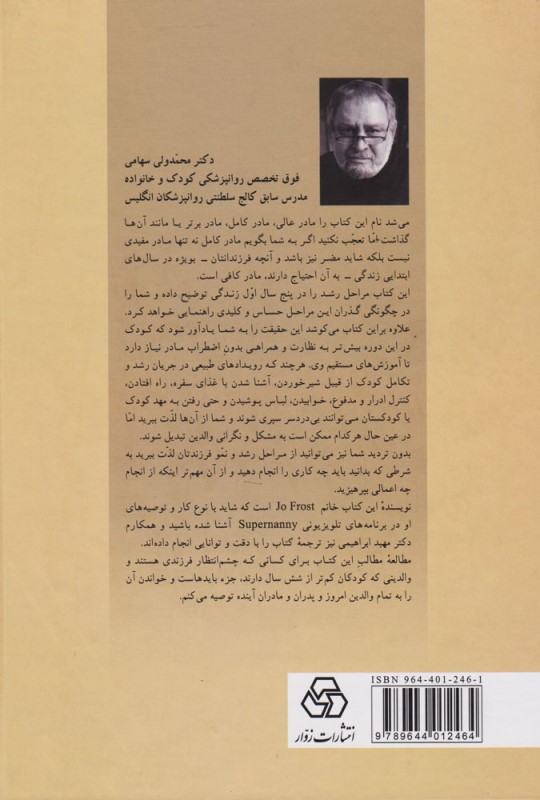 دکتر محمّدولی سهامی
فوق تخصص روانپزشکی کودک و خانواده
مدرس سابق کالج سلطنتی روانپزشکان انگلیس
می‌شد نام این کتاب را مادر عالی، مادر کامل، مادر برتر یا مانند آن‌ها
گذاشت امّا تعجّب نکنید اگر به شما بگویم مادر کامل نه تنها مادر مفیدی
نیست بلکه شاید مضر نیز باشد و آنچه فرزندانتان ـ بویژه در سال‌های
ابتدایی زندگی ـ به آن احتیاج دارند، مادر کافی است.
این کتاب مراحل رشد را در پنج سال اوّل زندگی توضیح داده و شما را
در چگونگی گذران این مراحل حساس و کلیدی راهنمایی خواهد کرد.
علاوه براین کتاب می‌کوشد این حقیقت را به شما یادآور شود که کودک
در این دوره بیش‌تر به نظارت و همراهی بدونِ اضطراب مادر نیاز دارد
تا آموزش‌های مستقیم وی. هرچند که رویدادهای طبیعی در جریان رشد و
تکامل کودک از قبیل شیرخوردن، آشنا شدن با غذای سفره، راه افتادن،
کنترل ادرار و مدفوع، خوابیدن، لباس پوشیدن و حتی رفتن به مهد کودک
یا کودکستان می‌توانند بی‌دردسر سپری شوند و شما از آن‌ها لذّت ببرید امّا
در عین حال هرکدام ممکن است به مشکل و نگرانی والدین تبدیل شوند.
بدون تردید شما نیز می‌توانید از مراحل رشد و نمّو فرزندتان لذّت ببرید به
شرطی که بدانید باید چه کاری را انجام دهید و از آن مهم‌تر اینکه از انجام
چه اعمالی بپرهیزید.
نویسندهٔ این کتاب خانم Jo Frost است که شاید با نوع کار و توصیه‌های
او در برنامه‌های تلویزیونی Supernanny آشنا شده باشید و همکارم
دکتر مهبد ابراهیمی نیز ترجمهٔ کتاب را با دقت و توانایی انجام داده‌اند.
مطالعهٔ مطالب این کتاب برای کسانی که چشم‌انتظار فرزندی هستند و
والدینی که کودکان کم‌تر از شش سال دارند، جزء بایدهاست و خواندن آن
را به تمام والدین امروز و پدران و مادران آینده توصیه می‌کنم.
ISBN 964-401-246-1
9 789644 012464
انتشارات زوّار